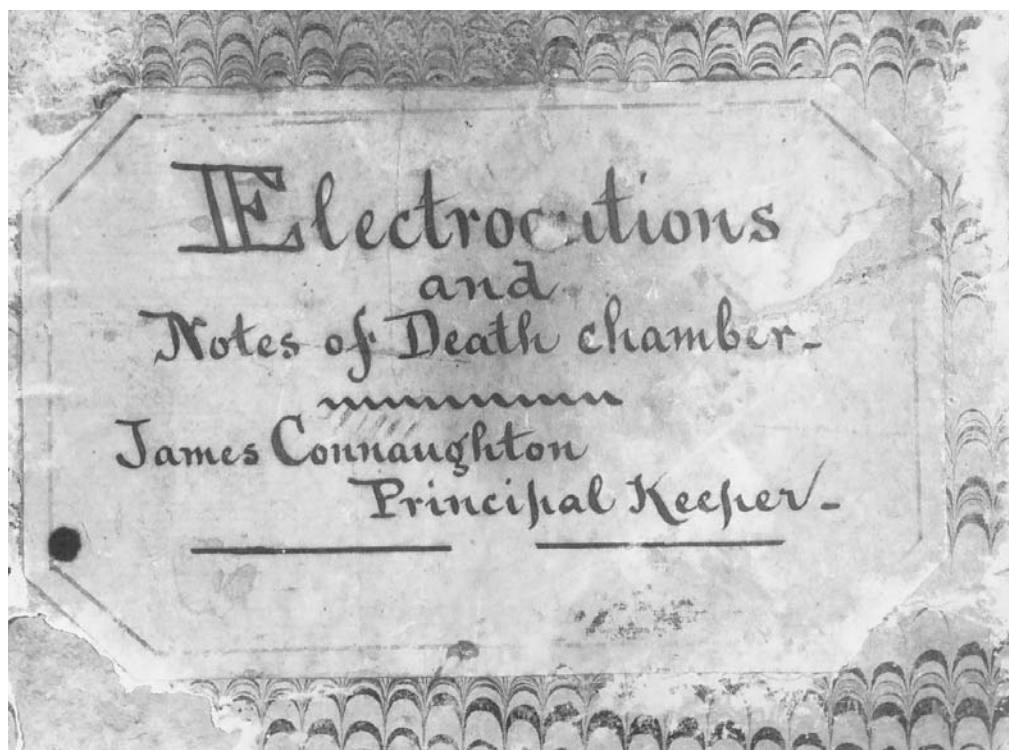 Electrocutions
and
Notes of Death chamber-
James Connaughton
Principal Keeper-